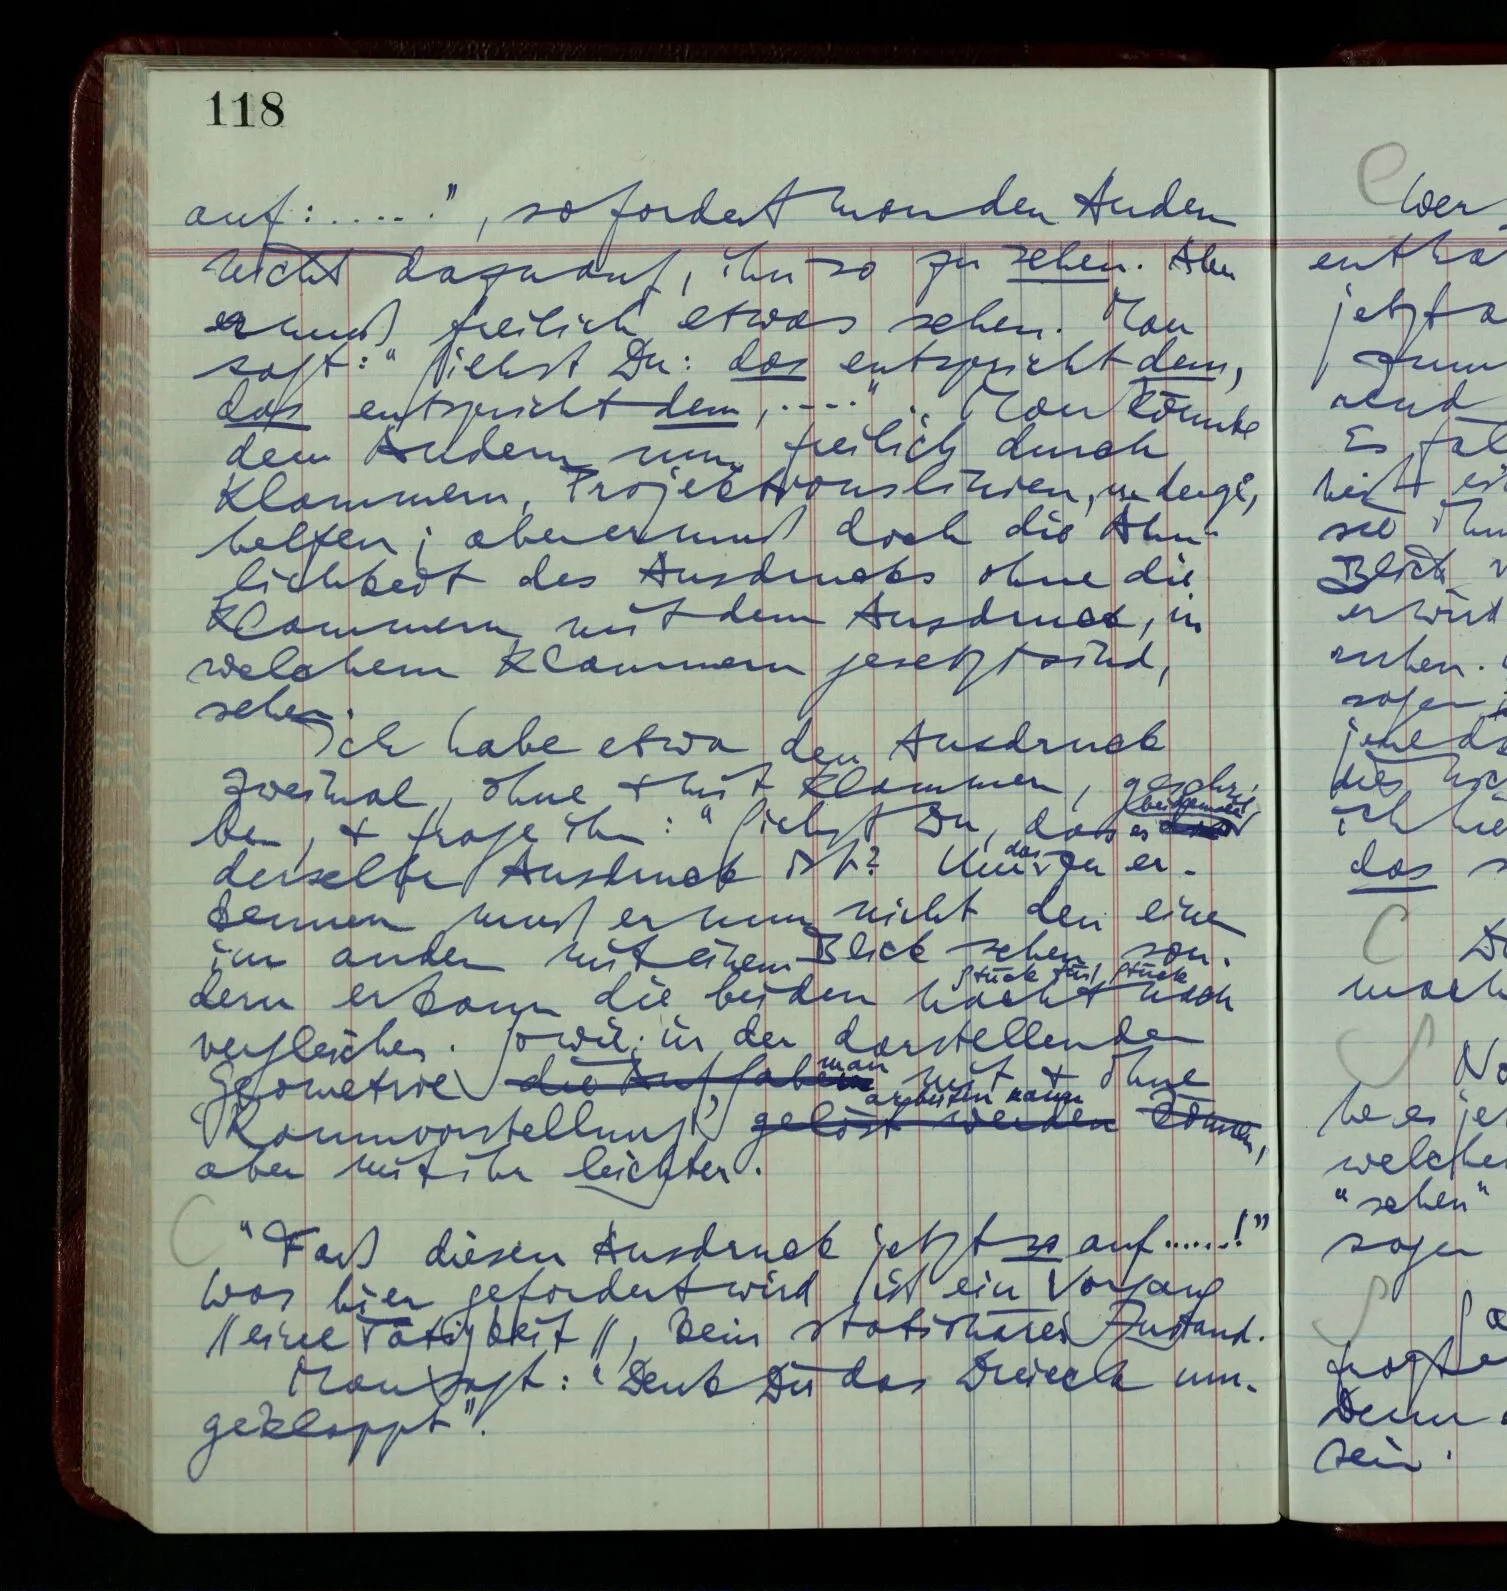 118
auf: .....", so fordert man den Andern
nicht dazu auf, ihn so zu sehen. Aber
er muß freilich etwas sehen. Man
sagt: "Siehst Du: das entspricht dem,
das entspricht dem, ....". Man könnte
dem Andern nun freilich durch
Klammern, Projektionslinien, u. dergl.,
helfen; aber er muß doch die Ähn-
lichkeit des Ausdrucks ohne die
Klammern mit dem Ausdruck, in
welchem Klammern gesetzt sind,
sehen.
Ich habe etwa den Ausdruck
zweimal, ohne + mit Klammern, geschrie-
ben, + frage ihn: "Siehst Du, daß es
derselbe Ausdruck ist? Um das zu er-
kennen muß er nun nicht den einen
im andern mit einem Blick sehen, son-
dern er kann die beiden Stück für Stück
vergleichen. So wie in der darstellenden
Geometrie die Aufgaben man mit + ohne
'Raumvorstellung' gelöst werden können, arbeiten kann
aber mit ihr leichter.
"Faß diesen Ausdruck jetzt so auf......!"
Was hier gefordert wird ist ein Vorgang
//eine Tätigkeit//, kein stationärer Zustand.
Man sagt: "Denk Dir das Dreieck um-
geklappt".
Wer
jetzt
das
"sehen"
sagen
Denn
sein.